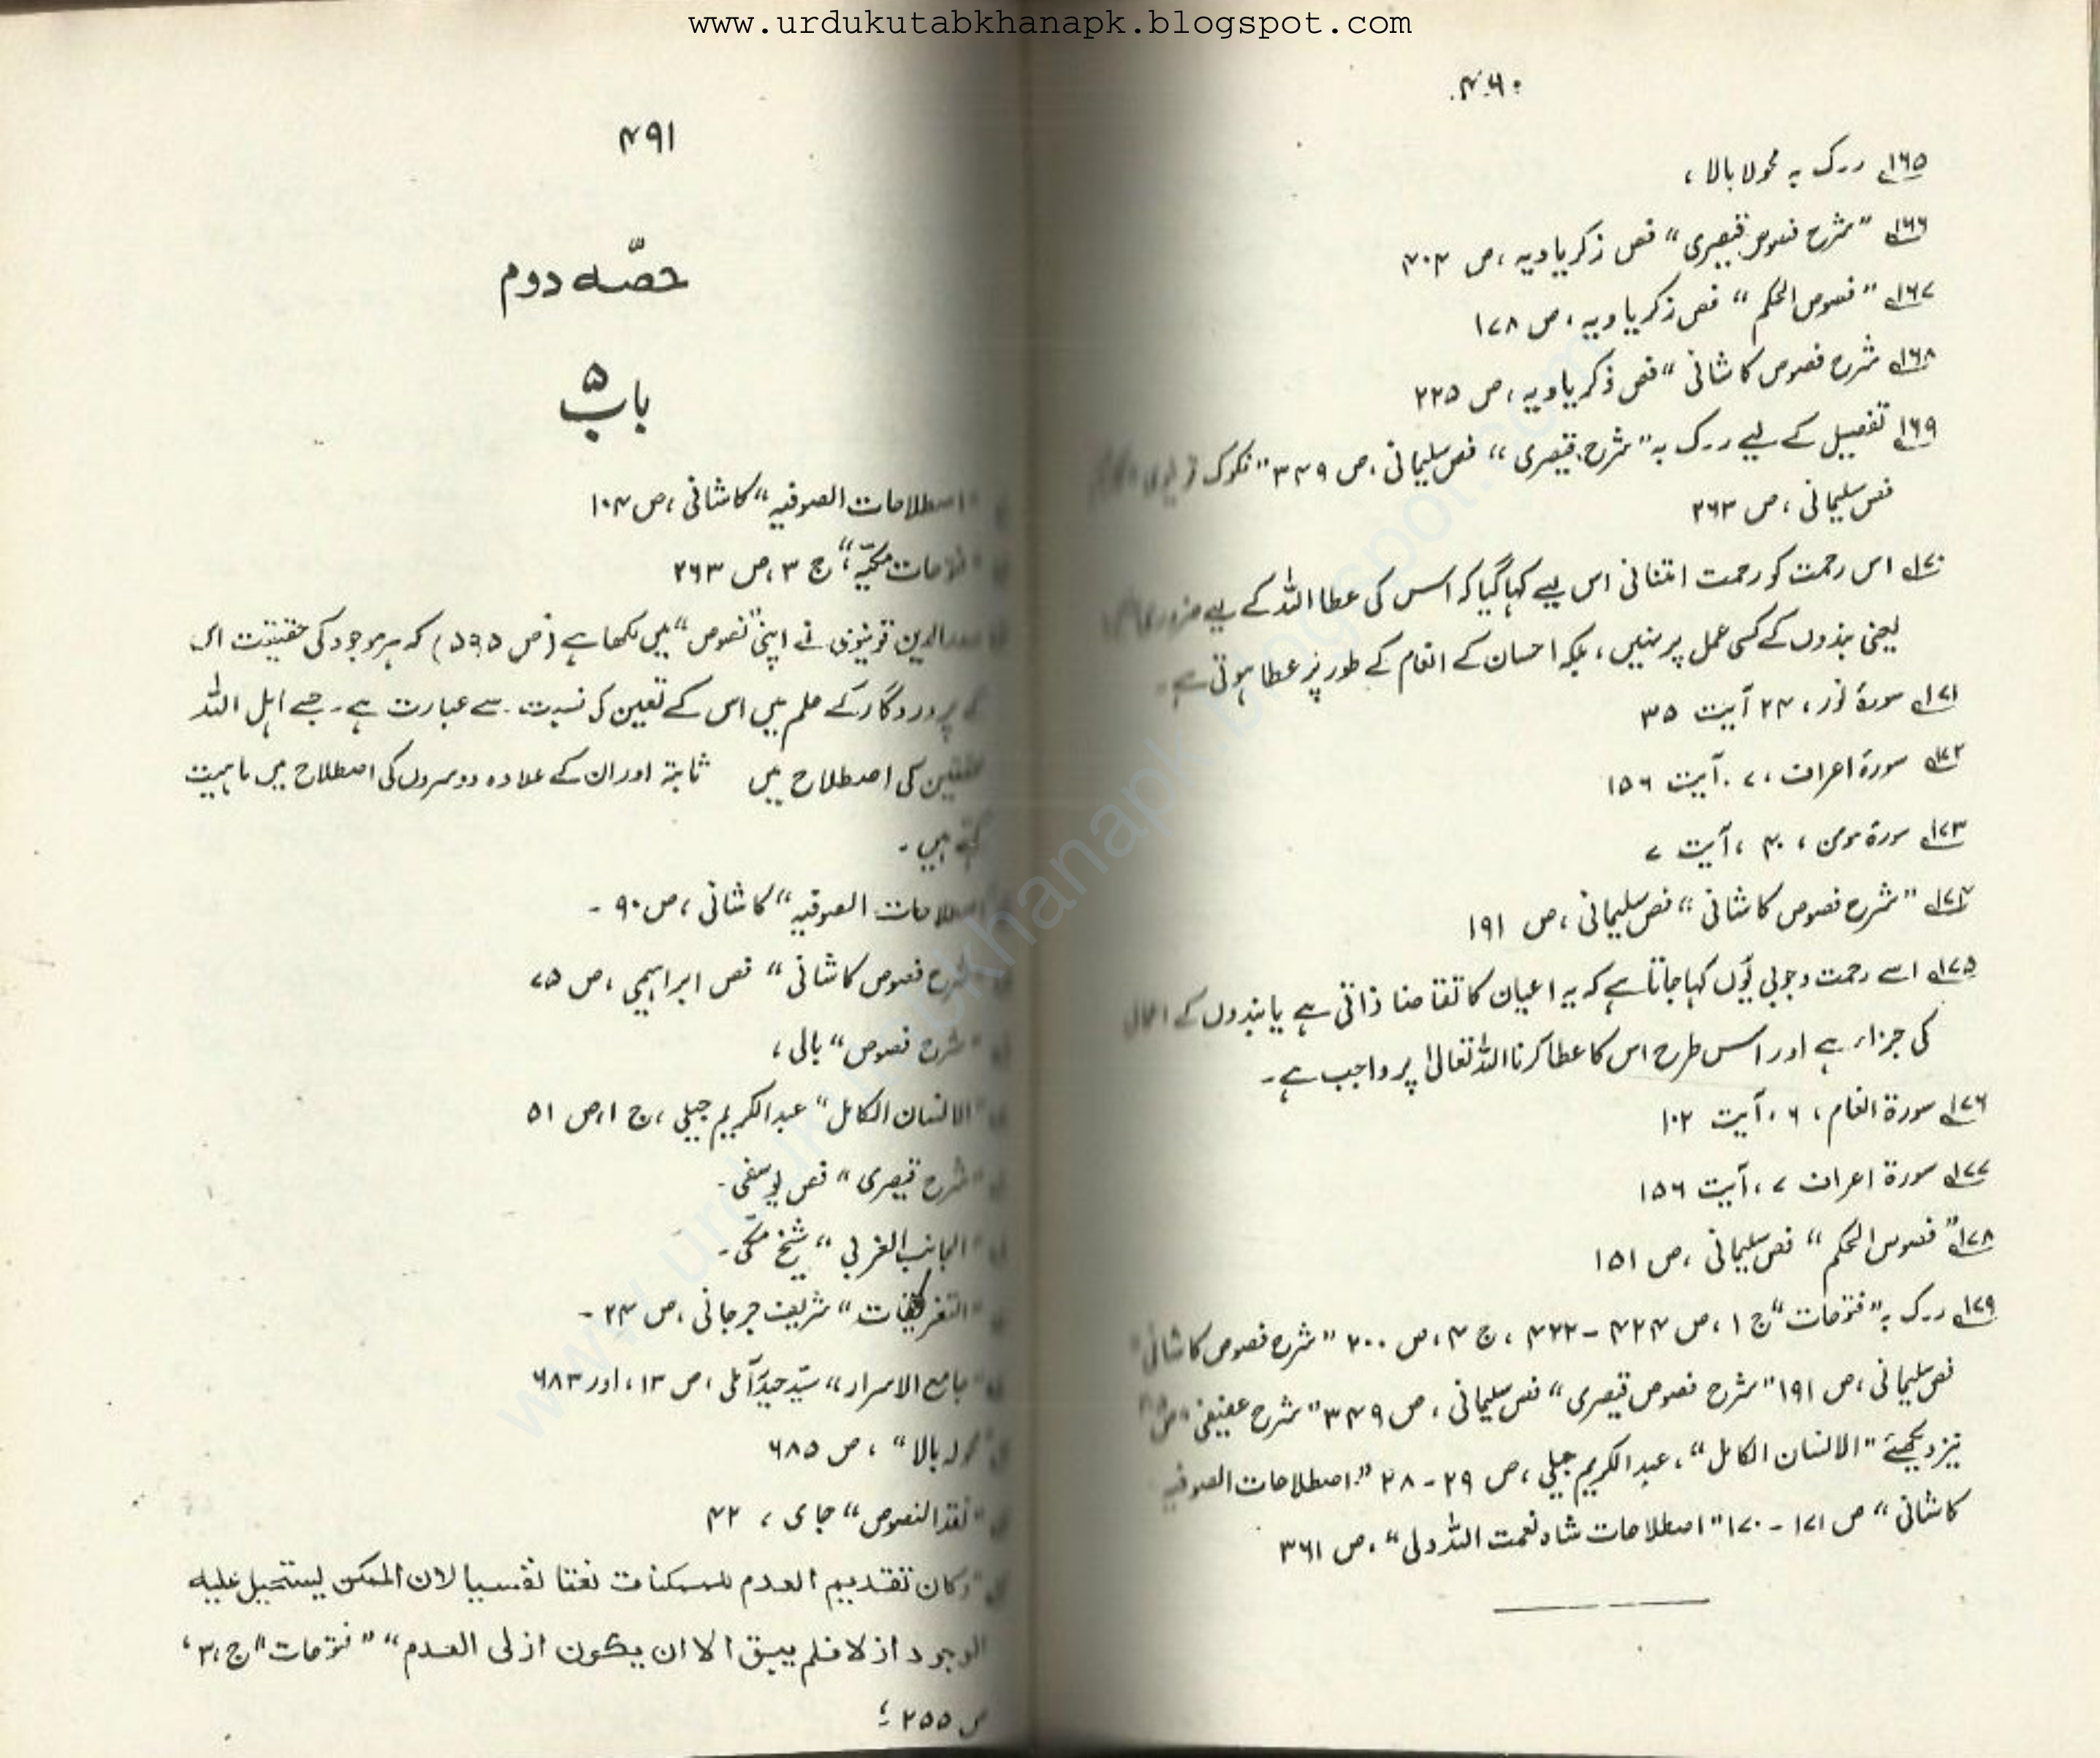 www.urdukutabkhanapk.blogspot.com
۴۹۰
۱۶۵ ر۔ک بہ محولا بالا ،
۱۶۶ "شرح فصوص قیصری" فص زکریاویہ ، ص ۴۰۴
۱۶۷ "فصوص الحکم" فص زکریاویہ ، ص ۱۷۸
۱۶۸ شرح فصوص کاشانی" فص ذکریاویہ ، ص ۲۲۵
۱۶۹ تفصیل کے لیے ر۔ک بہ "شرح قیصری" فص سلیمانی ، ص ۳۴۹ "فکوک
فص سلیمانی ، ص ۲۶۳
۱۷۰ اس رحمت کو رحمت امتنانی اس لیے کہا گیا کہ اس کی عطا اللہ کے لیے ضروری
یعنی بندوں کے کسی عمل پر نہیں ، بلکہ احسان کے انعام کے طور پر عطا ہوتی ہے۔
۱۷۱ سورۂ نور ، ۲۴ آیت ۳۵
۱۷۲ سورۃ اعراف ، ۷ ۔ آیت ۱۵۶
۱۷۳ سورۃ مومن ، ۴۰ ، آیت ۷
۱۷۴ "شرح فصوص کاشانی" فص سلیمانی ، ص ۱۹۱
۱۷۵ اسے رحمت وجوبی یوں کہا جاتا ہے کہ یہ اعیان کا تقاضا ذاتی ہے یا بندوں کے اعمال
کی جزاء ہے اور اس طرح اس کا عطا کرنا اللہ تعالیٰ پر واجب ہے۔
۱۷۶ سورۃ انعام ، ۶ ، آیت ۱۰۲
۱۷۷ سورۃ اعراف ۷ ، آیت ۱۵۶
۱۷۸ "فصوص الحکم" فص سلیمانی ، ص ۱۵۱
۱۷۹ ر۔ک بہ "فتوحات" ج ۱ ، ص ۴۲۴ - ۴۲۲ ، ج ۴ ، ص ۲۰۰ "شرح فصوص کاشانی"
فص سلیمانی ، ص ۱۹۱ "شرح فصوص قیصری" فص سلیمانی ، ص ۳۴۹ "شرح عفیفی"
نیز دیکھیے "الانسان الکامل" ، عبدالکریم جیلی ، ص ۲۹ - ۲۸ "اصطلاحات الصوفیہ
کاشانی" ص ۱۷۱ - ۱۷۰ "اصطلاحات شاہ نعمت اللہ ولی" ، ص ۳۶۱
۴۹۱
حصّہ دوم
باب ۵
"اصطلاحات الصوفیہ" کاشانی ، ص ۱۰۴
"فتوحات مکیّہ" ، ج ۳ ، ص ۲۶۳
صدرالدین قونیوی نے اپنی "نصوص" میں لکھا ہے (ص ۵۹۵) کہ ہر موجود کی حقیقت اس
کے پروردگار کے علم میں اس کے تعین کی نسبت سے عبارت ہے۔ جسے اہل اللہ
محققین کی اصطلاح میں ثابتہ اور ان کے علاوہ دوسروں کی اصطلاح میں ماہیت
کہتے ہیں۔
اصطلاحات الصوفیہ" کاشانی ، ص ۹۰ ۔
شرح فصوص کاشانی" فص ابراہیمی ، ص ۷۵
"شرح فصوص" بالی ،
"الانسان الکامل" عبدالکریم جیلی ، ج ۱ ، ص ۵۱
"شرح قیصری" فص یوسفی ۔
"الجانب الغربی" شیخ مکّی ۔
"التعریفات" شریف جرجانی ، ص ۲۴ ۔
"جامع الاسرار" سیّد حیدر آملی ، ص ۱۳ ، اور ۶۸۳
"محولہ بالا" ، ص ۶۸۵
"نقد النصوص" جامی ، ۴۲
"وکان تقدیم العدم للممکنات نعتا نفسیا لان الممکن یستحیل علیہ
الوجود ازلا فلم یبق الا ان یکون ازلی العدم" "فتوحات" ج ۳ ،
ص ۲۵۵ ؛